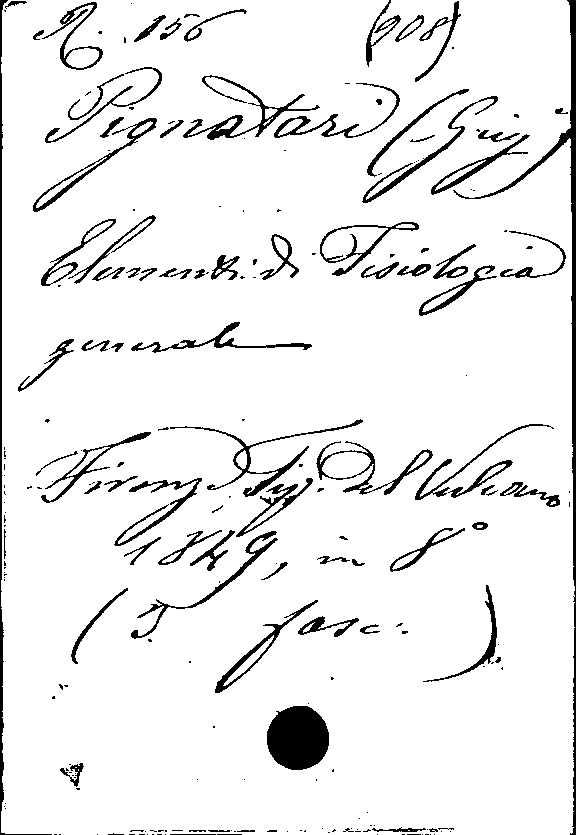 R. 156 (908)
Pignatari (Grig.)
Elementi di Fisiologia
generale
Firenze Tip. del Vulcano
1849, in 8°
( fasc. )